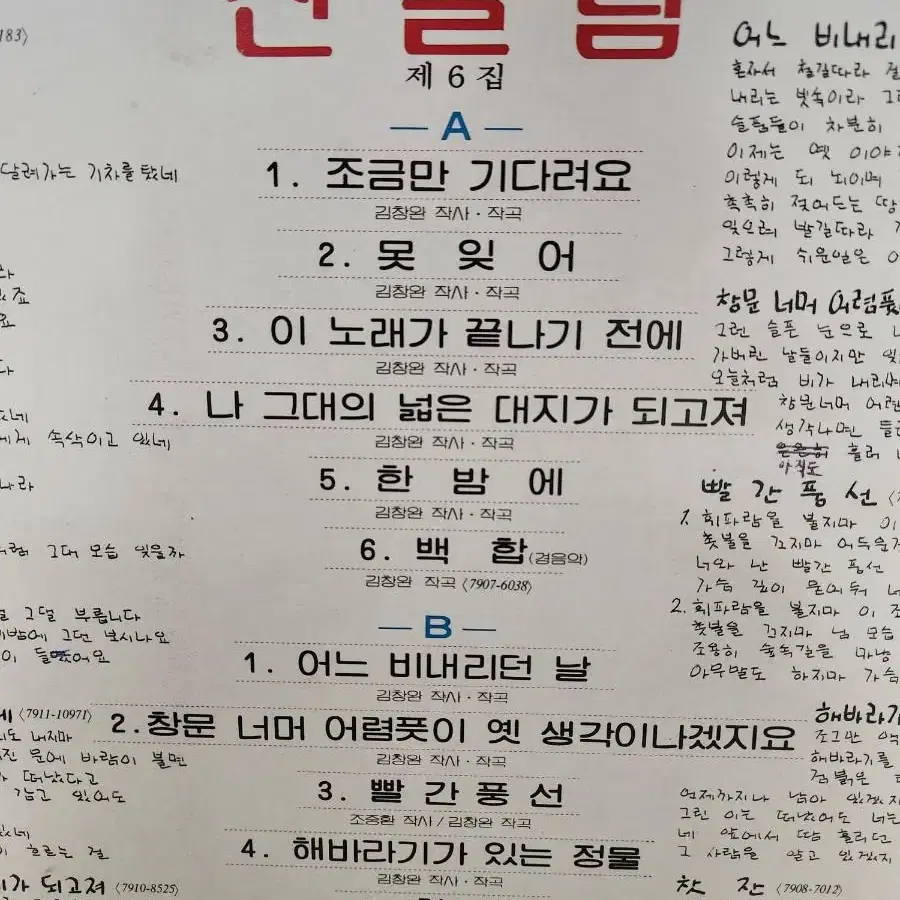 산울림
제 6 집
— A —
1. 조금만 기다려요
김창완 작사 · 작곡
2. 못 잊 어
김창완 작사 · 작곡
3. 이 노래가 끝나기 전에
김창완 작사 · 작곡
4. 나 그대의 넓은 대지가 되고져
김창완 작사 · 작곡
5. 한 밤 에
김창완 작사 · 작곡
6. 백 합(경음악)
김창완 작곡 〈7907-6038〉
— B —
1. 어느 비내리던 날
김창완 작사 · 작곡
2.창문 너머 어렴풋이 옛 생각이나겠지요
김창완 작사 · 작곡
3. 빨 간 풍 선
조승환 작사 / 김창완 작곡
4. 해바라기가 있는 정물
김창완 작사 · 작곡
183〉
달려가는 기차를 탔네
속삭이고 있네
그대 모습 잊을까
그덜 부릅니다
〈7911-10971〉
내지마
문에 바람이 불면
떠났다고
감고 있어도
흐르는 걸
가 되고져 〈7910-8525〉
어느 비내리
혼자서 철길따라 걸
내리는 빗속이라 그
슬픔들이 차분히
이제는 옛 이야
이렇게 되 뇌이며
촉촉히 젖어드는 땅
잊으려 발길따라
그렇게 쉬운일은
창문 너머 어렴풋
그런 슬픈 눈으로 나
가버린 날들이지만 잊
오늘처럼 비가 내리며
창문너머 어렴
생각나면 들
흘러
아직도
빨 간 풍 선
1. 휘파람을 불지마 이
촛불을 끄지마 어두운
너와 난 빨간 풍선
가슴 깊이 묻어둬 너
2. 휘파람을 불지마 이 조
촛불을 끄지마 님 모습
조용히 숲속길을 마냥
아무말도 하지마 가슴
해바라기
조그만
해바라기를
검붉은
언제까지나 남아 있겠지
그린 이는 떠났어도 너는
네 앞에서 땀 흘리던
그 사람을 알고 있겠지
찻 잔 〈7908-7012〉